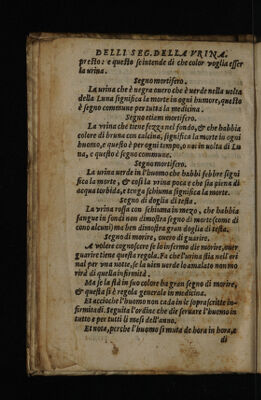 DELLI SEG. DELLA VRINA.
presto: e questo se intende di che color voglia esser
la vrina.
Segno mortifero.
La vrina che è negra ouero che è verde nella uolta
della Luna significa la morte in ogni humore, questo
è segno commune per tutta la medicina.
Segno etiam mortifero.
La vrina che tiene fezza nel fondo, & che habbia
colore di bruna con calcina, significa la morte in ogni
huomo, e questo è per ogni tempo, o uoi in uolta di Lu
na, e questo è segno commune.
Segno mortifero.
La urina uerde in l'huomo che habbi febbre signi
fica la morte, & così la vrina poca e che sia piena di
acqua torbida, e tenga schiuma significa la morte.
Segno di doglia di testa.
La vrina rossa con schiuma in mezo, che habbia
sangue in fondi non dimostra segno di morte (come di
cono alcuni) ma ben dimostra gran doglia di testa.
Segno di morire, ouero di guarire.
A volere cognoscere se lo infermo die morire, ouer
guarire tiene questa regola. Fa che l'urina stia nell'ori
nal per vna notte, se la uien uerde lo amalato non mo
rirà di quella infirmità.
Ma se la stà in suo colore ha gran segno di morire,
& questa si è regola generale in medicina.
Et accioche l'huomo non cada in le soprascritte in-
firmitadi. Seguita l'ordine che die seruare l'huomo in
tutto e per tutti li mesi dell'anno.
Et nota, perche l'huomo si muta de hora in hora, e
di